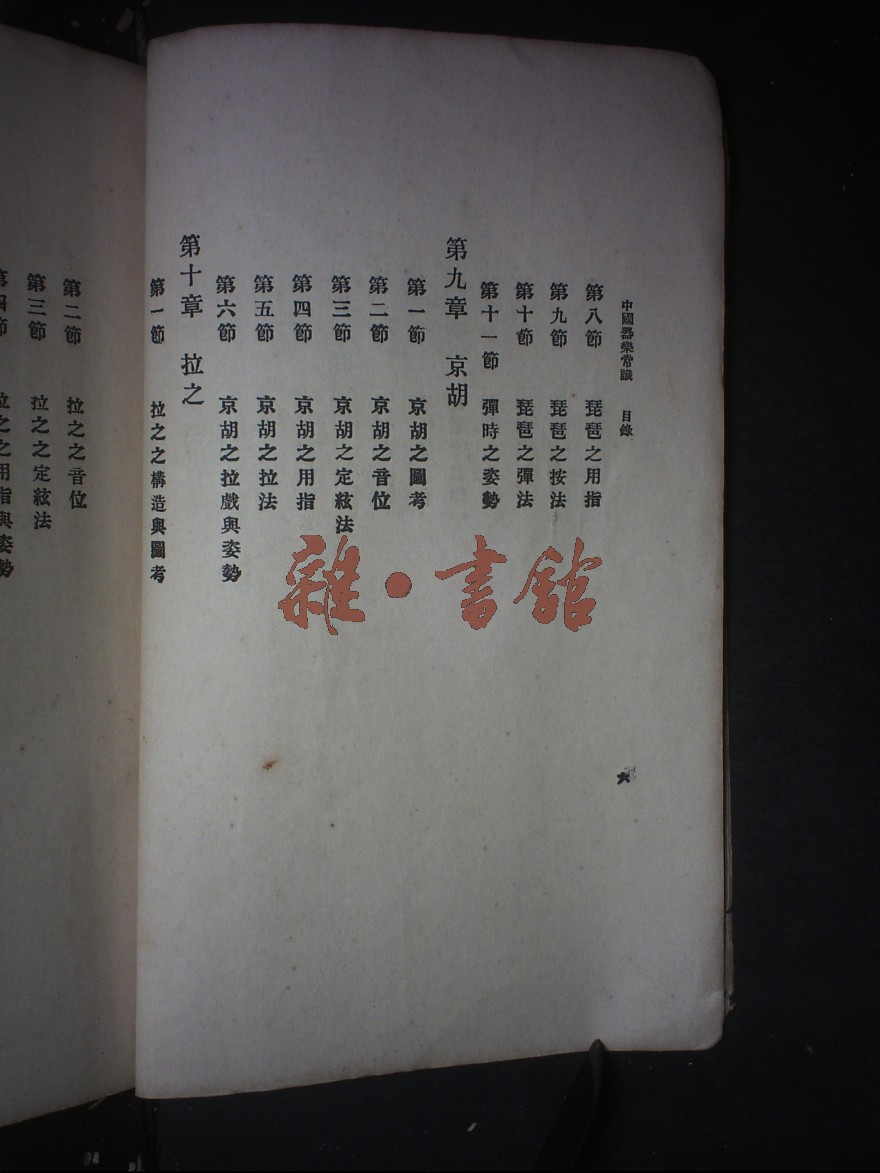 中國器樂常識 目錄
第八節 琵琶之用指
第九節 琵琶之按法
第十節 琵琶之彈法
第十一節 彈時之姿勢
第九章 京胡
第一節 京胡之圖考
第二節 京胡之音位
第三節 京胡之定絃法
第四節 京胡之用指
第五節 京胡之拉法
第六節 京胡之拉戲與姿勢
第十章 拉之
第一節 拉之之構造與圖考
六
第二節 拉之之音位
第三節 拉之之定絃法
第四節 拉之之用指與姿勢
雜·書館